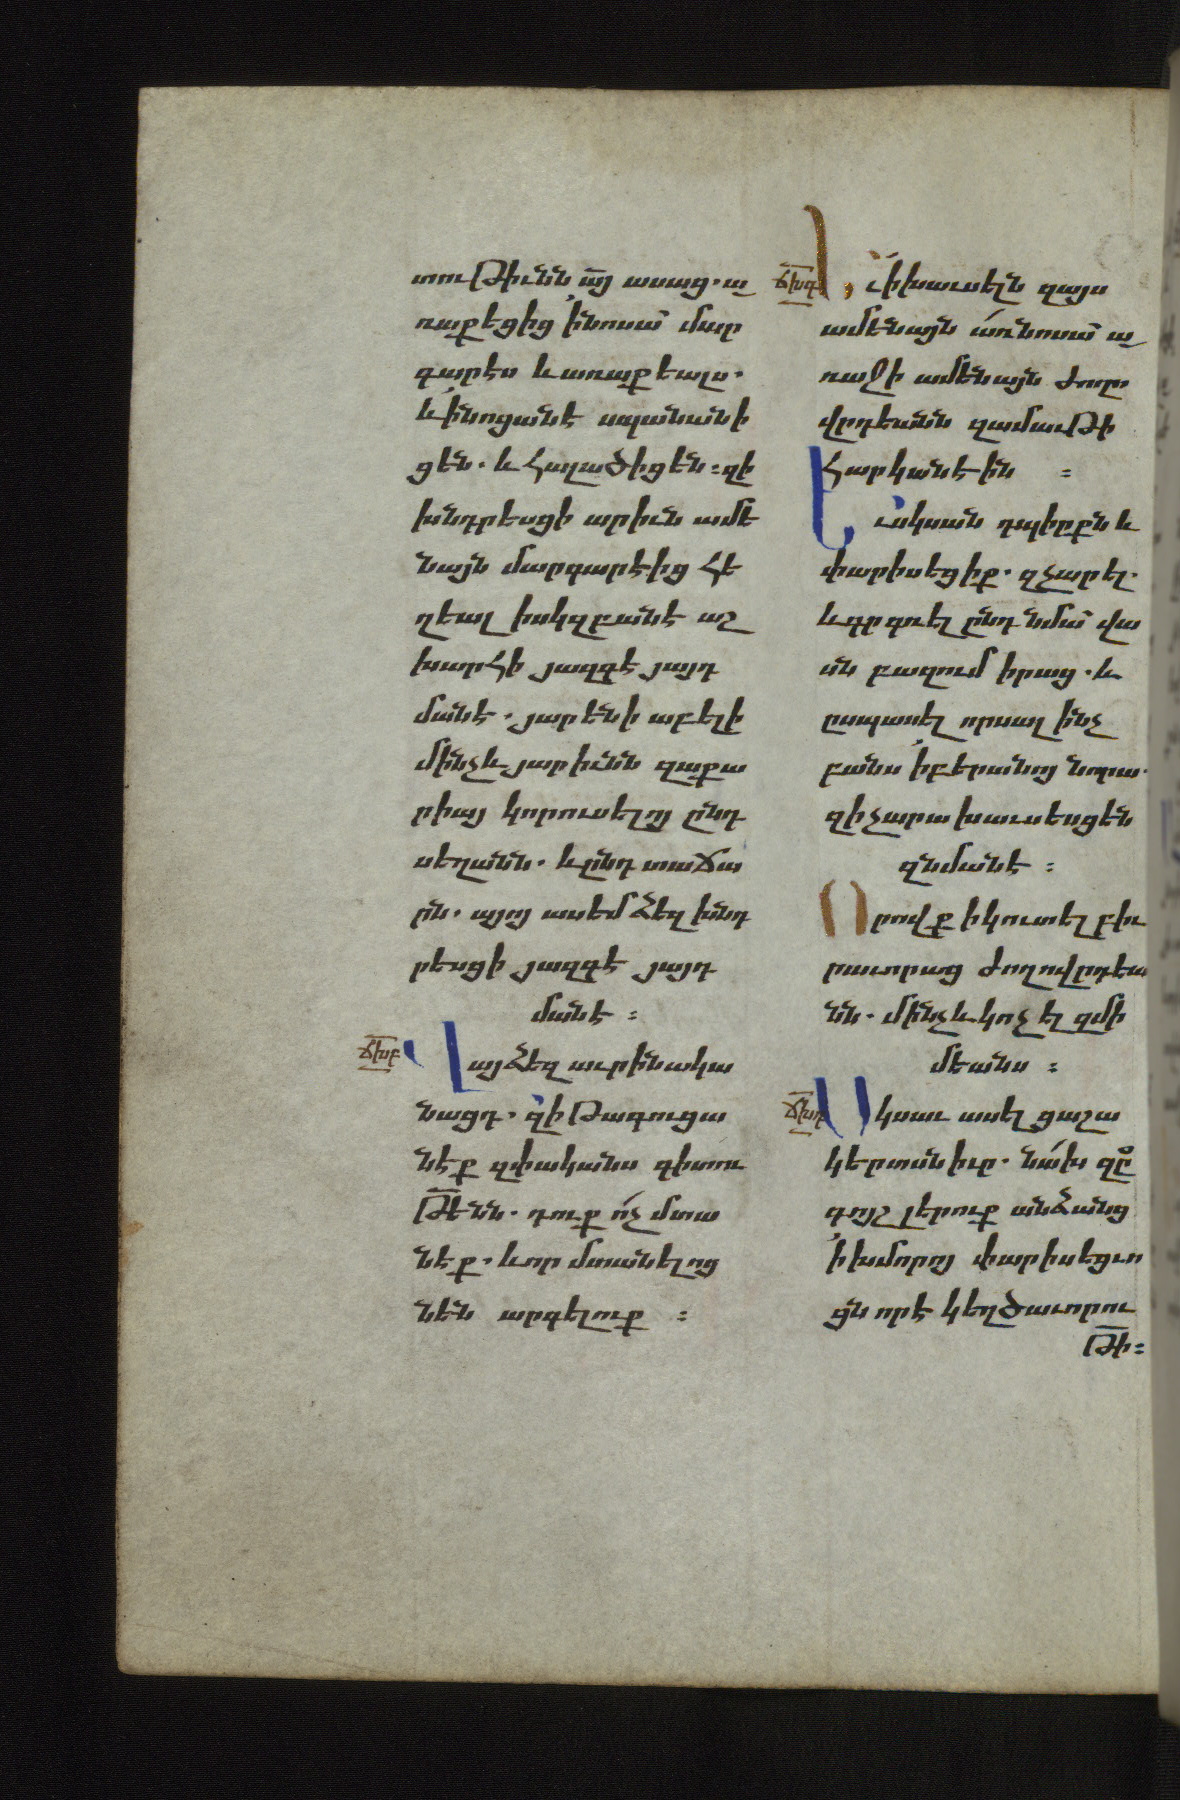 տութիւնն ա՟յ ասաց. ա
ռաքեցից ինոսա մար
գարէս և առաքեալս.
և ինոցանէ սպանանի
ցեն. և հալածիցեն։ զի
խնդրեսցի արիւն ամե
նայն մարգարէից հե
ղեալ իսկզբանէ աշ
խարհի յազգէ յայդ
մանէ. յարենէ աբելի
մինչև յարիւնն զաքա
րիայ կորուսելոյ ընդ
սեղանն. և ընդ տաճա
րն. այոյ ասեմ ձեզ խնդ
րեսցի յազգէ յայդ
մանէ։
ճխբ
Վայ ձեզ աւրինակա
նացդ. զի թագուցա
նէք զփականս գիտու
թե՟նն. դուք ոչ մտա
նէք. և որ մտանելոց
նեն արգելուք։
ճխգ
Եւ ի խաւսելն զայս
ամենայն առ նոսա ա
ռաջի ամենայն ժողո
վրդեանն զամաւթի
հարկանէին։
Սկսան դպիրքն և
փարիսեցիք. զչարել.
և գրգռել ընդ նմա վա
սն բազում իրաց. և
ըսպասել որսալ ինչ
բանս ի բերանոյ նորա.
զի չարախաւսեսցեն
զնմանէ։
Որովք ի կուտել բիւ
րաւորաց ժողովրդեա
նն. մինչև կոչել զմի
մեանս։
ճխդ
Սկսաւ ասել ցաշա
կերտսն իւր. նախ զը
գոյշ լերուք անձանց
ի խմորոյ փարիսեցւո
ցն որ է կեղծաւորու
թի՟։